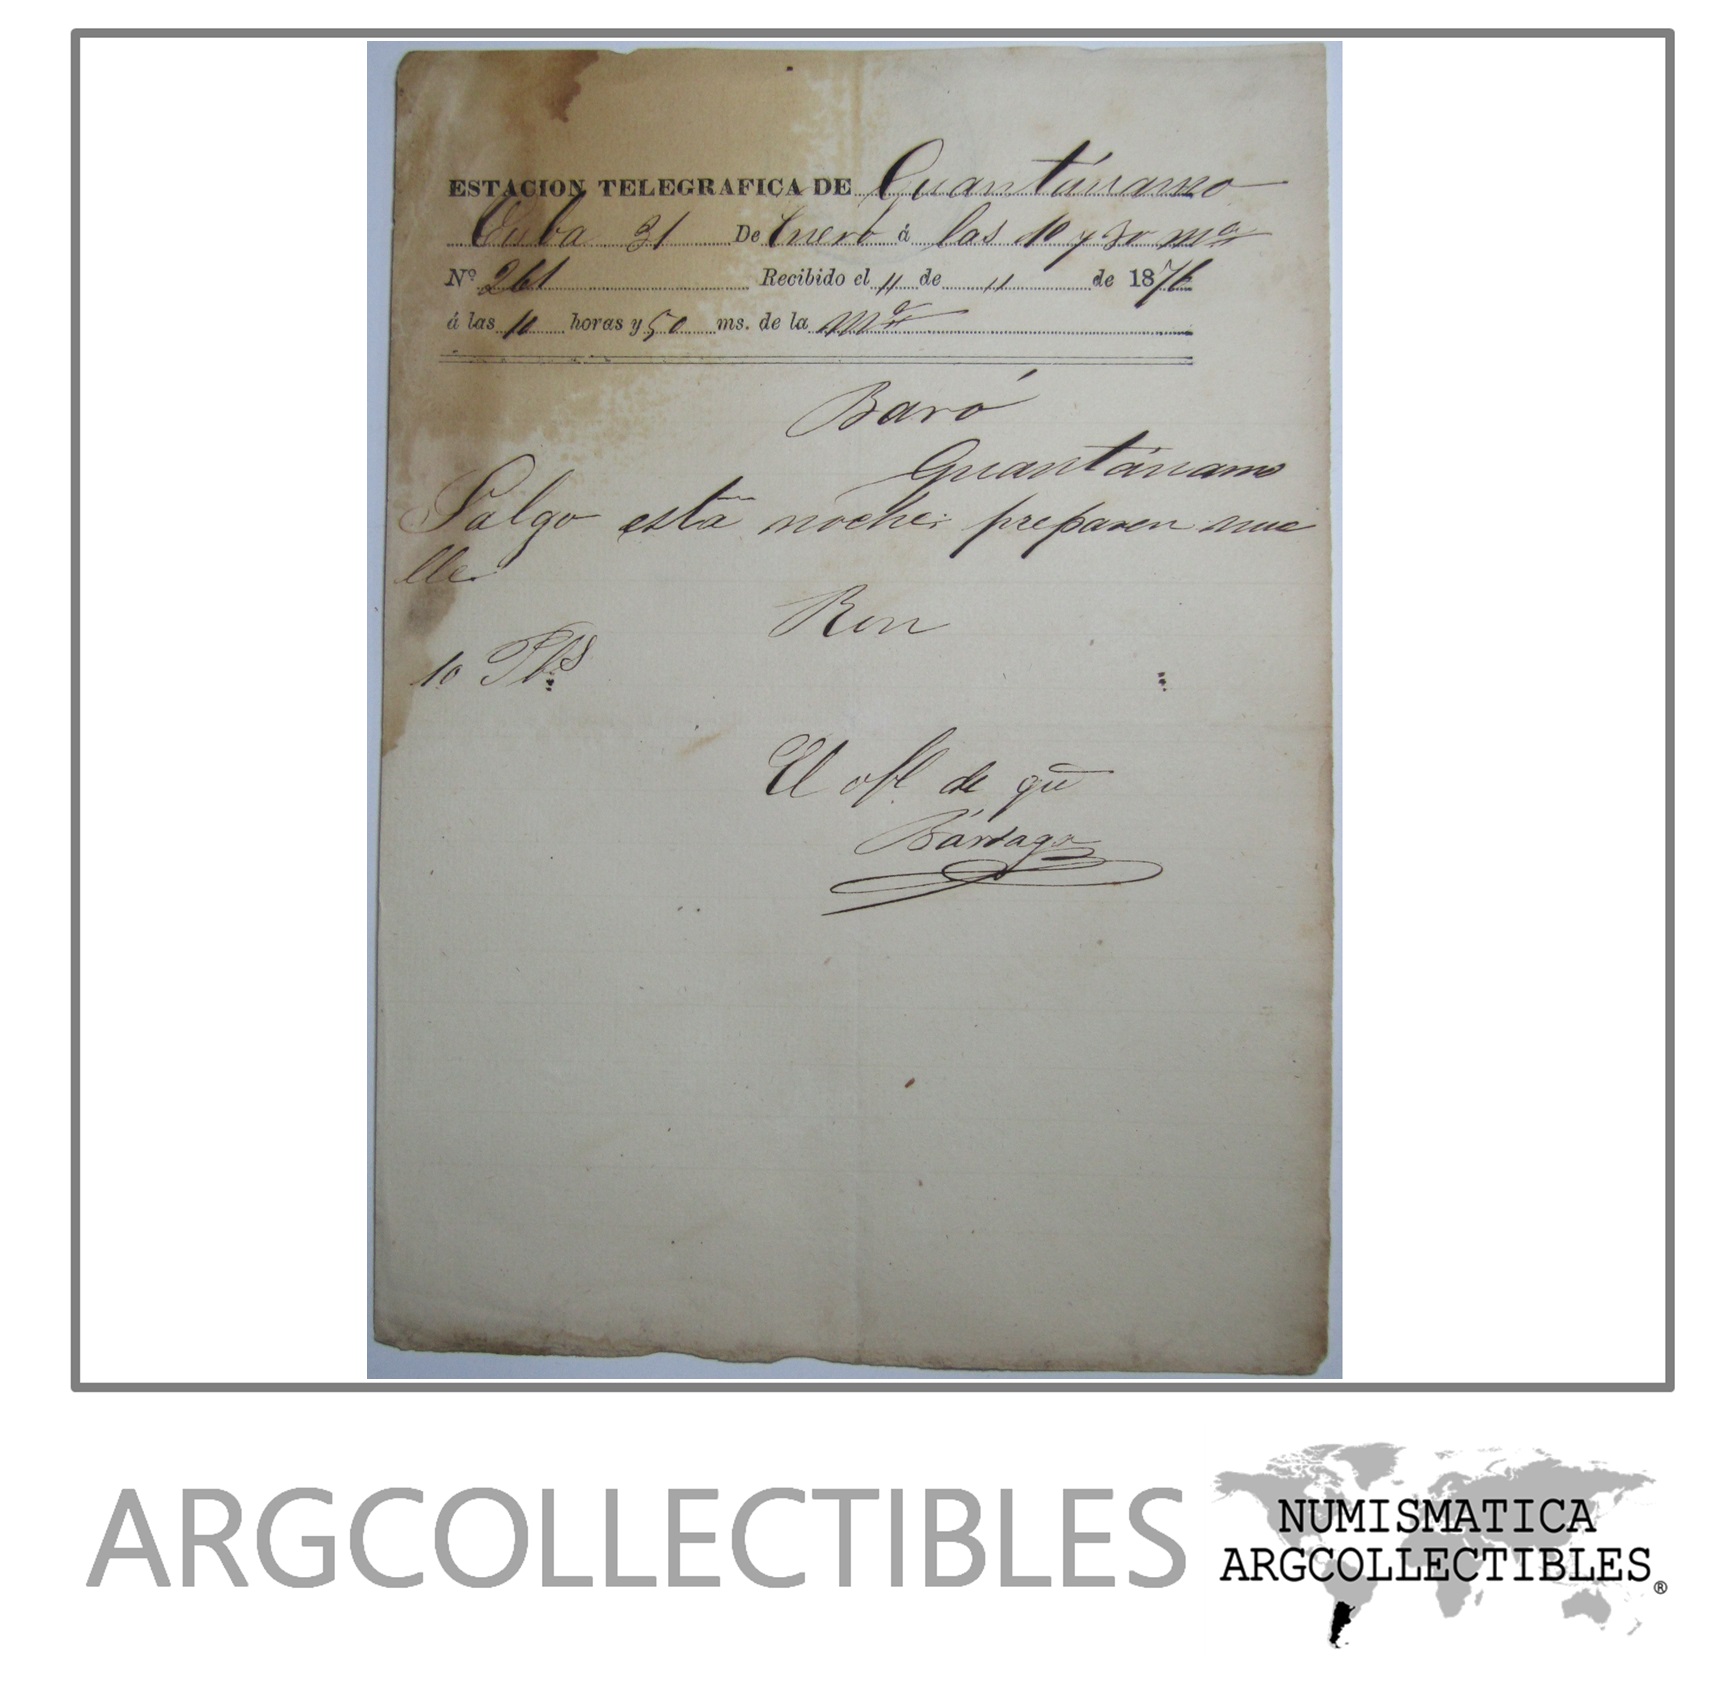 ESTACION TELEGRAFICA DE Guantánamo
Cuba 31 De Enero á las 10 y 30 mª
Nº 261 Recibido el 〃 de 〃 de 1876
á las 10 horas y 50 ms. de la mª
Baró
Guantánamo
Salgo esta noche: preparen mue
lle.
Ron
10 Pbs
El ofl. de gū
ARGCOLLECTIBLES
NUMISMATICA
ARGCOLLECTIBLES®